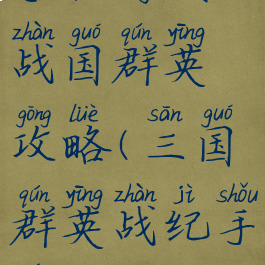 zhàn guó qún yīng
战国群英
gōng lüè sān guó
攻略(三国
qún yīng zhàn jì shǒu
群英战纪手